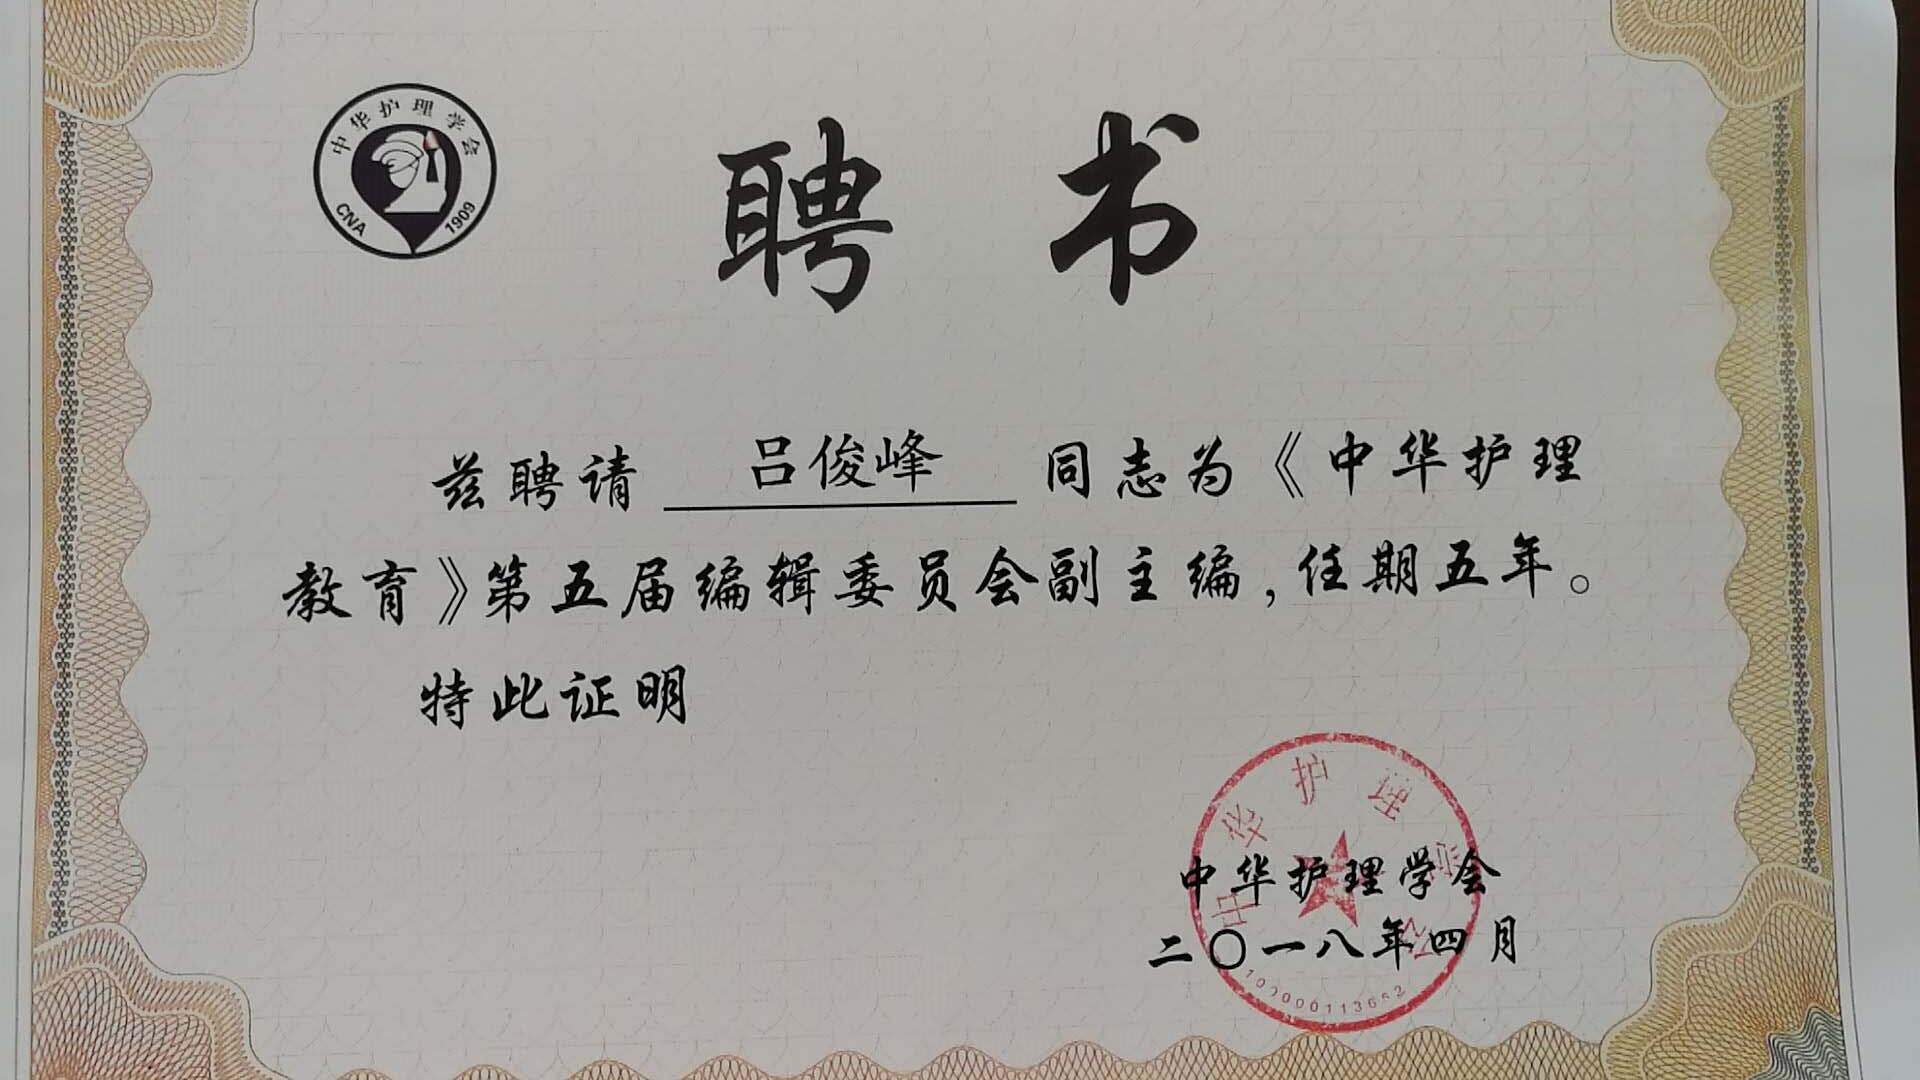 中华护理学会
CNA 1909
聘书
兹聘请 吕俊峰 同志为《中华护理
教育》第五届编辑委员会副主编,任期五年。
特此证明
中华护理学会
中华护理学会
二〇一八年四月